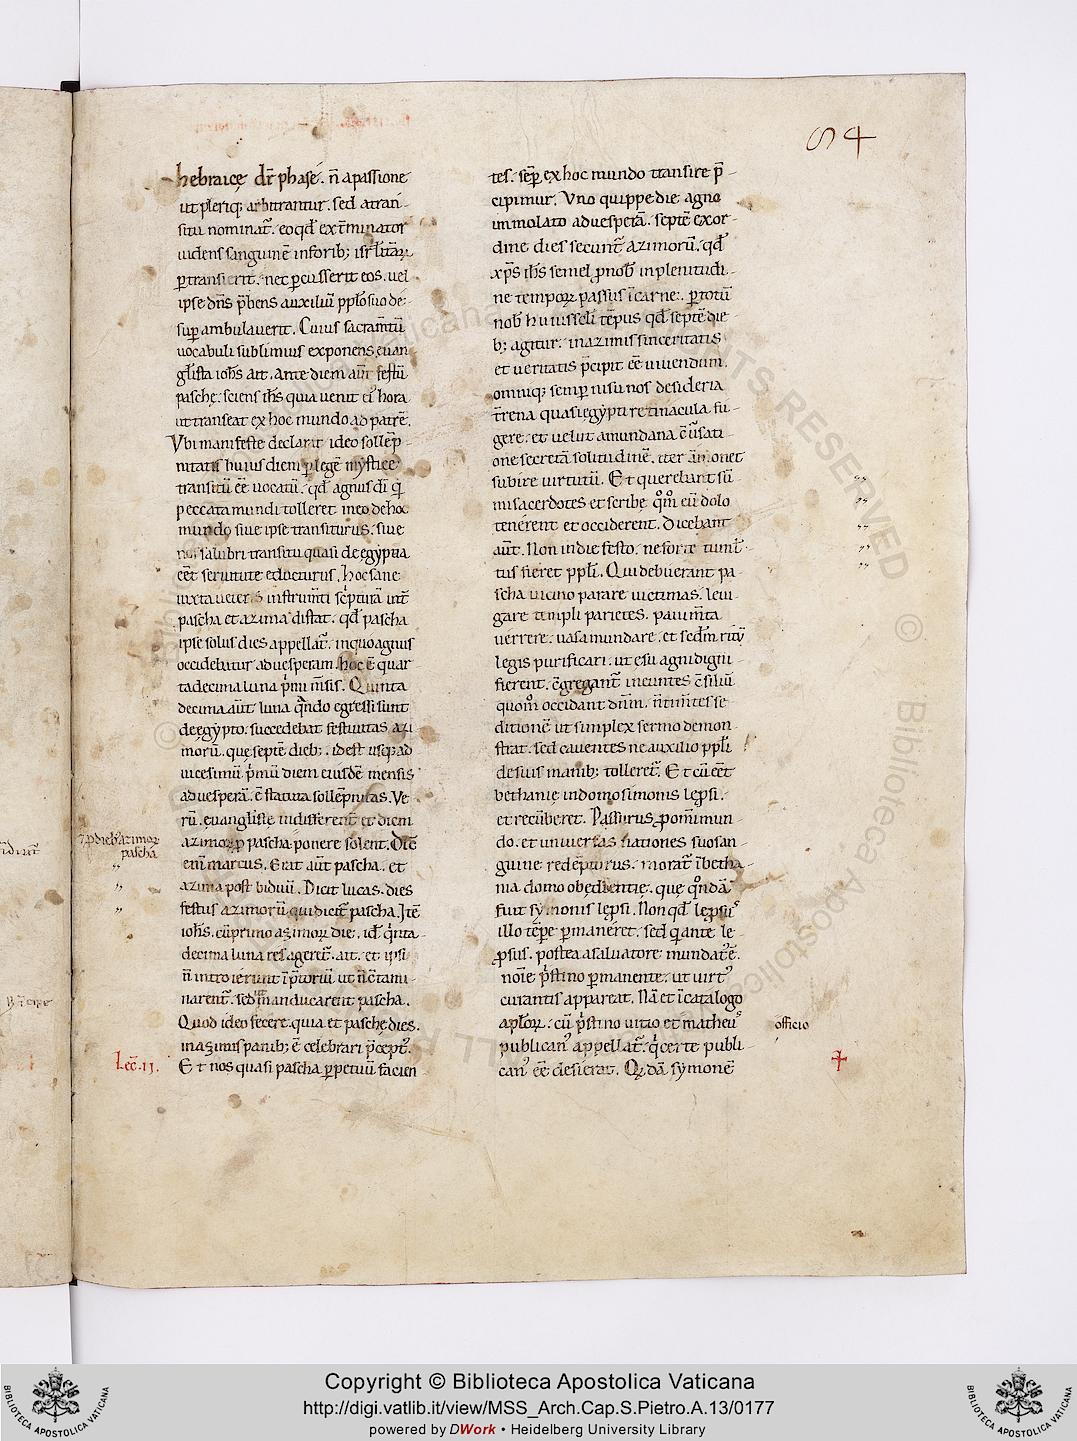 84
hebraicę dr̄ phase. n̄ a passione
ut pleriq; arbitrantur. sed a tran-
situ nominat̄. eo qd̄ ext̄minator
uidens sanguinē in forib; isr̄l̄itarꝝ
ꝑtransierit. nec ꝑcusserit eos. uel
ipse dn̄s p̄bens auxiliū ppl̄o suo de-
suꝑ ambulauerit. Cuius sacram̄tū
uocabuli sublimius exponens euan-
gl̄ista ioh̄s ait. Ante diem aūt festū
paschę. sciens ih̄s quia uenit ei' hora
ut transeat ex hoc mundo ad patrē.
Vbi manifeste declarat ideo sollēp-
nitatis huius diem ꝑ legē mystice
transitū ēē uocatū. qd̄ agnus dī q̄
peccata mundi tolleret in eo de hoc
mundo siue ipse transiturus. siue
nos salubri transitu quasi de ęgyptia
eēt seruitute educturus. Hoc sane
iuxta ueteris instrum̄ti sc̄pturā int̄
pascha et azima distat. qd̄ pascha
ipse solus dies appellat̄. in quo agnus
occidebatur ad uesperam. hoc ē quar-
tadecima luna p̄mi m̄sis. Quinta
decima aūt luna q̄ndo egressi sunt
de ęgypto. succedebat festiuitas azi-
morū. quę septē dieb;. id est usq; ad
uicesimū p̄mū diem eiusdē mensis
ad uesperā. ē statuta sollēpnitas. Ve-
rū. euangliste indifferent̄ et diem
azimoꝝ ꝓ pascha ponere solent. Dic̄
enī marcus. Erat aūt pascha. et
azima post biduū. Dicit lucas. dies
festus azimorū qui dicit̄ pascha. Itē
ioh̄s. cū primo azimoꝝ die. id̄ q̄nta-
decima luna res ageret̄. ait. et ipsi
n̄ introierunt ī p̄toriū. ut n̄ c̄tami-
narent̄. sed ut manducarent pascha.
Quod ideo fecere. quia et paschę dies.
in azimis panib; ē celebrari p̄cept̄.
Et nos quasi pascha ꝑpetuū facien-
ꝓ dieb; azimoꝝ
pascha
Lec̄. ii.
tes. seꝑ ex hoc mundo transire p̄-
cipimur. Vno quippe die agno
immolato ad uesperā. septē ex or-
dine dies secunt̄ azimorū. qd̄
xp̄s ih̄s semel ꝓ nob̄ in plenitudi-
ne tempoꝝ passus ī carne. ꝑ totū
nob̄ hui' sc̄li tēpus qd̄ septē die-
b; agitur. in azimis sinceritatis
et ueritatis p̄cipit ēē uiuendum.
omniq; semꝑ nisu nos desideria
t̄rena quasi ęgypti retinacula fu-
gere. et uelut a mundana c̄ūsati-
one secretā solitudinē. iter am̄onet
subire uirtutū. Et querebant sū-
mi sacerdotes et scribę. q̄m̄ eū dolo
tenerent et occiderent. Dicebant
aūt. Non in die festo. ne forte tumul-
tus fieret ppl̄i. Qui debuerant pa-
scha uicino parare uictimas. leui-
gare templi parietes. pauim̄ta
uerrere. uasa mundare. et sed̄m ritū
legis purificari. ut esu agni digni
fierent. c̄gregant̄ ineuntes c̄siliū
quom̄ occidant dn̄m. n̄ tim̄tes se-
ditionē ut simplex sermo demon-
strat. sed cauentes ne auxilio ppl̄i
de suis manib; tolleret̄. Et cū eēt
bethanie in domo simonis lępsi.
et recūberet. Passurus ꝓ om̄i mun-
do. et uniuersas nationes suo san-
guine redēpturus. morat̄ ī betha-
nia domo obędientię. que q̄ndā
fuit symonis lępsi. Non qd̄ lępsus
illo tēpe ꝑmaneret. sed q̄ ante le-
psus. postea a saluatore mundat' ē.
noīe p̄stino ꝑmanente. ut uirt'
curantis appareat. Nā et ī catalogo
apl̄oꝝ. cū p̄stino uitio et matheus
publican' appellat̄. q̄ certe publi-
can' ēē desierat. Qdā symonē
officio
Copyright © Biblioteca Apostolica Vaticana
http://digi.vatlib.it/view/MSS_Arch.Cap.S.Pietro.A.13/0177
powered by DWork • Heidelberg University Library
BIBLIOTECA APOSTOLICA VATICANA
BIBLIOTECA APOSTOLICA VATICANA